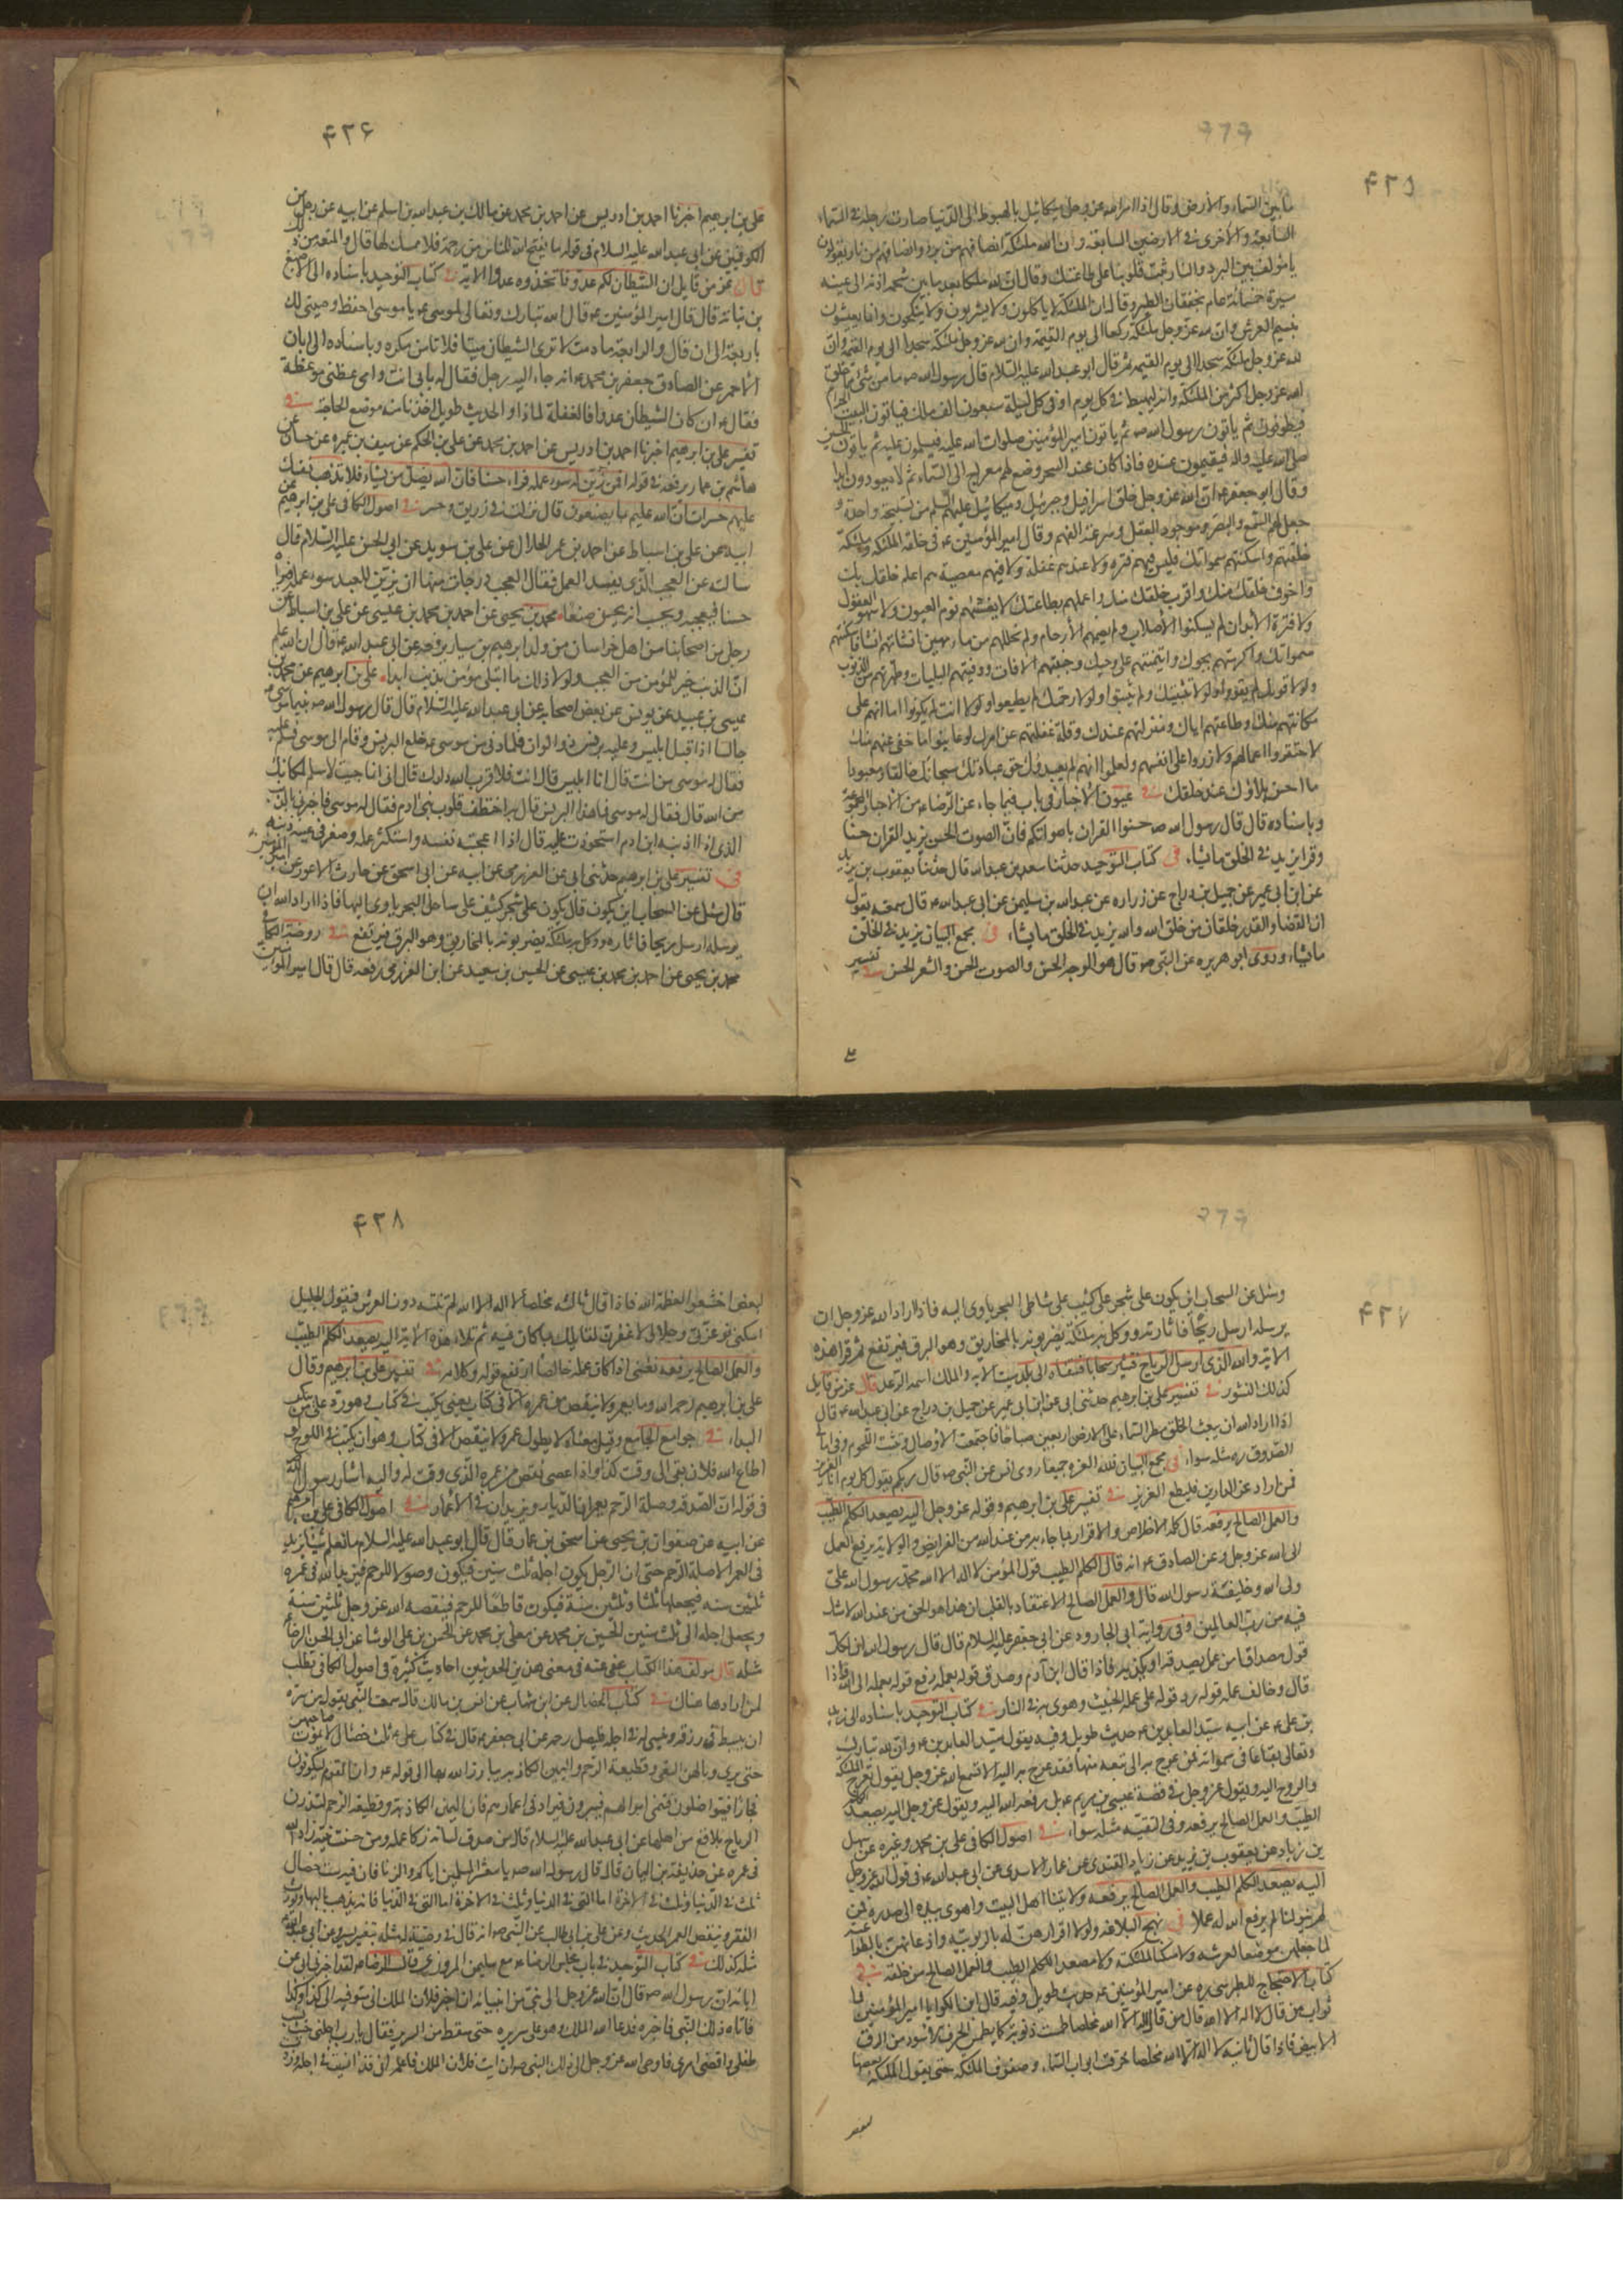 ۴۲۵
ما بين السماء والأرض وقال اذا امر الله عز وجل ميكائيل بالهبوط الى الدنيا صارت رجله في السماء
السابعة والأخرى في الارضين السابعة وان لله ملئكة انصافهم من برد وانصافهم من نار يقولون
يا مؤلف بين البرد والنار ثبت قلوبنا على طاعتك وقال ان لله ملكا بعد ما بين شحمة اذنه الى عينه
مسيرة خمسمائة عام بخفقان الطير وقال ان الملئكة لا ياكلون ولا يشربون ولا ينكحون وانما يعيشون
بنسيم العرش وان لله عز وجل ملئكة ركعا الى يوم القيمة وان لله عز وجل ملئكة سجدا الى يوم القيمة وان
لله عز وجل ملئكة سجدا الى يوم القيمة ثم قال ابو عبد الله عليه السلام قال رسول الله ص ما من شئ مما خلق
الله عز وجل اكثر من الملئكة وانه ليهبط في كل يوم او في كل ليلة سبعون الف ملك فياتون البيت الحرام
فيطوفون ثم ياتون رسول الله ص ثم ياتون امير المؤمنين صلوات الله عليه فيسلمون عليه ثم ياتون الحسين
صلى الله عليه واله فيقيمون عنده فاذا كان عند السحر وضع لهم معراج الى السماء ثم لا يعودون ابدا
وقال ابو جعفر ع ان الله عز وجل خلق اسرافيل وجبرئيل وميكائيل عليهم السلم من تسبيحة واحدة و
جعل لهم السمع والبصر وموجود العقل وسرعة الفهم وقال امير المؤمنين ع في خلقة الملئكة وملئكة
خلقتهم واسكنتهم سمواتك فليس فيهم فترة ولا عندهم غفلة ولا فيهم معصية هم اعلم خلقك بك
واخوف خلقك منك واقرب خلقك منك واعملهم بطاعتك لا يغشيهم نوم العيون ولا سهو العقول
ولا فترة الأبدان لم يسكنوا الأصلاب ولم تضمهم الأرحام ولم تخلقهم من ماء مهين انشاتهم انشاء فاسكنتهم
سمواتك واكرمتهم بجوارك وايتمنتهم على وحيك وجنبتهم الافات ووقيتهم البليات وطهرتهم من الذنوب
ولولا قوتك لم يقووا ولولا تثبيتك لم يثبتوا ولولا رحمتك لم يطيعوا ولولا انت لم يكونوا اما انهم على
مكانتهم منك وطاعتهم اياك ومنزلتهم عندك وقلة غفلتهم عن امرك لو عاينوا ما خفى عنهم منك
لاحتقروا اعمالهم ولازروا على انفسهم ولعلموا انهم لم يعبدوك حق عبادتك سبحانك خالقا ومعبودا
ما احسن بلاؤك عند خلقك في عيون الأخبار في باب فيما جاء عن الرضا ع من الأخبار المجموعة
وباسناده قال قال رسول الله ص حسنوا القران باصواتكم فان الصوت الحسن يزيد القران حسنا
وقرا يزيد في الخلق ما يشاء في كتاب التوحيد حدثنا سعد بن عبد الله قال حدثنا يعقوب بن يزيد
عن ابن ابي عمير عن جميل بن دراج عن زرارة عن عبد الله بن سليمن عن ابي عبد الله ع قال سمعته يقول
ان القضاء والقدر خلقان من خلق الله والله يزيد في الخلق ما يشاء في مجمع البيان يزيد في الخلق
ما يشاء وروى ابو هريرة عن النبي ص قال هو الوجه الحسن والصوت الحسن والشعر الحسن في تفسير
على
۴۲۶
على بن ابرهيم اخبرنا احمد بن ادريس عن احمد بن محمد عن مالك بن عبد الله بن اسلم عن ابيه عن رجل من
الكوفيين عن ابي عبد الله عليه السلام في قوله ما يفتح الله للناس من رحمة فلا ممسك لها قال والمتعة من ذلك
قال عز من قايل ان الشيطان لكم عدو فاتخذوه عدوا الاية في كتاب التوحيد باسناده الى الاصبغ
بن نباتة قال قال امير المؤمنين ع قال الله تبارك وتعالى لموسى ع يا موسى احفظ وصيتي لك
باربعة الى ان قال والرابعة ما دمت لا ترى الشيطان ميتا فلا تامن مكره وباسناده الى ابان
الأحمر عن الصادق جعفر بن محمد ع انه جاء اليه رجل فقال له بابي انت وامي عظني موعظة
فقال ع ان كان الشيطان عدوا فالغفلة لماذا والحديث طويل اخذنا منه موضع الحاجة في
تفسير على بن ابرهيم اخبرنا احمد بن ادريس عن احمد بن محمد عن على بن الحكم عن سيف بن عميرة عن حسان عن
هاشم بن عمار يرفعه في قوله افمن زين له سوء عمله فراه حسنا فان الله يضل من يشاء فلا تذهب نفسك
عليهم حسرات ان الله عليم بما يصنعون قال نزلت في زريق وحبتر في اصول الكافي على بن ابرهيم عن
ابيه عن على بن اسباط عن احمد بن عمر الحلال عن على بن سويد عن ابي الحسن عليه السلام قال
سالته عن العجب الذي يفسد العمل فقال العجب درجات منها ان يزين للعبد سوء عمله فيراه
حسنا فيعجبه ويحسب انه يحسن صنعا محمد بن يحيى عن احمد بن محمد بن عيسى عن على بن اسباط عن
رجل من اصحابنا من اهل خراسان من ولد ابرهيم بن سيار يرفعه عن ابي عبد الله ع قال ان الله علم
ان الذنب خير للمؤمن من العجب ولولا ذلك ما ابتلى مؤمن بذنب ابدا على بن ابرهيم عن محمد بن
عيسى بن عبيد عن يونس عن بعض اصحابه عن ابي عبد الله عليه السلام قال قال رسول الله ص بينما موسى ع
جالسا اذ اقبل ابليس وعليه برنس ذو الوان فلما دنى من موسى ع خلع البرنس وقام الى موسى فسلم عليه
فقال له موسى من انت قال انا ابليس قال انت فلا قرب الله دارك قال اني انما جيت لاسلم عليك لمكانك
من الله قال فقال له موسى فما هذا البرنس قال به اختطف قلوب بني ادم فقال له موسى فاخبرني بالذنب
الذي اذا اذنبه ابن ادم استحوذت عليه قال اذا اعجبته نفسه واستكثر عمله وصغر في عينه ذنبه
في تفسير على بن ابرهيم حدثني ابي عن العزرمي عن ابيه عن ابي اسحق عن حارث الاعور عن امير المؤمنين
قال سئل عن السحاب اين يكون قال يكون على شجر كثيف على ساحل البحر ياوى اليها فاذا اراد الله ان
يرسله ارسل ريحا فاثاره ووكل به ملئكة يضربونه بالمخاريق وهو البرق فيرتفع في روضة الكافي
محمد بن يحيى عن احمد بن محمد بن عيسى عن الحسين بن سعيد عن ابن العزرمي رفعه قال قال امير المؤمنين
۴۲۷
وسئل عن السحاب اين يكون قال يكون على شجر على كثيب على شاطئ البحر ياوى اليه فاذا اراد الله عز وجل ان
يرسله ارسل ريحا فاثارته ووكل به ملئكة يضربونه بالمخاريق وهو البرق فيرتفع ثم قرا هذه
الاية والله الذي ارسل الرياح فتثير سحابا فسقناه الى بلد ميت الاية والملك اسمه الرعد قال عز من قايل
كذلك النشور في تفسير على بن ابرهيم حدثني ابي عن ابن ابي عمير عن جميل بن دراج عن ابي عبد الله ع قال
اذا اراد الله ان يبعث الخلق مطر السماء على الارض اربعين صباحا فاجتمعت الأوصال ونبتت اللحوم وفي امالي
الصدوق ره مثله سواء في مجمع البيان فلله العزة جميعا روى انس عن النبي ص قال ربكم يقول كل يوم انا العزيز
فمن اراد عز الدارين فليطع العزيز في تفسير على بن ابرهيم وقوله عز وجل اليه يصعد الكلم الطيب
والعمل الصالح يرفعه قال كلمة الاخلاص والاقرار بما جاء به من عند الله من الفرايض والولاية يرفع العمل
الى الله عز وجل وعن الصادق ع انه قال الكلم الطيب قول المؤمن لا اله الا الله محمد رسول الله على
ولى الله وخليفة رسول الله قال والعمل الصالح الاعتقاد بالقلب ان هذا هو الحق من عند الله لا شك
فيه من رب العالمين وفي رواية ابي الجارود عن ابي جعفر عليه السلام قال قال رسول الله ان لكل
قول مصداقا من عمل يصدقه او يكذبه فاذا قال ابن آدم وصدق قوله بعمله رفع قوله بعمله الى الله واذا
قال وخالف عمله قوله رد قوله على عمله الخبيث وهوى به في النار في كتاب التوحيد باسناده الى زيد
بن على ع عن ابيه سيد العابدين ع حديث طويل وفيه يقول سيد العابدين ع وان لله تبارك
وتعالى بقاعا في سمواته فمن عرج به الى بقعة منها فقد عرج به اليه الا تسمع الله عز وجل يقول تعرج الملئكة
والروح اليه ويقول عز وجل في قصة عيسى بن مريم ع بل رفعه الله اليه ويقول عز وجل اليه يصعد الكلم
الطيب والعمل الصالح يرفعه وفي الفقيه مثله سواء في اصول الكافي على بن محمد وغيره عن سهل
بن زياد عن يعقوب بن يزيد عن زياد القندي عن عمار الاسدي عن ابي عبد الله ع في قول الله عز وجل
اليه يصعد الكلم الطيب والعمل الصالح يرفعه ولايتنا اهل البيت واهوى بيده الى صدره فمن
لم يتولنا لم يرفع الله له عملا في نهج البلاغة ولولا اقرارهن له بالربوبية واذعانهن بالطواعية
لما جعلهن موضعا لعرشه ولا مسكنا لملئكته ولا مصعدا للكلم الطيب والعمل الصالح من خلقه في
كتاب الاحتجاج للطبرسي ره عن امير المؤمنين ع حديث طويل وفيه قال ابن الكوا يا امير المؤمنين فما
ثواب من قال لا اله الا الله قال من قال لا اله الا الله مخلصا طمست ذنوبه كما يطمس الحرف الأسود من الرق
الابيض فاذا قال ثانية لا اله الا الله مخلصا خرقت ابواب السماء وصفوف الملئكة حتى يقول الملئكة بعضها
لبعض
۴۲۸
لبعض اخشعوا لعظمة الله فاذا قال ثالثة مخلصا لا اله الا الله لم تنته دون العرش فيقول الجليل
اسكني فوعزتي وجلالي لاغفرن لقائلك بما كان فيه ثم تلا هذه الاية اليه يصعد الكلم الطيب
والعمل الصالح يرفعه يعني اذا كان عمله خالصا ارتفع قوله وكلامه في تفسير على بن ابرهيم وقال
على بن ابرهيم رحمه الله وما يعمر ولا ينقص من عمره الا في كتاب يعني يكتب في كتاب وهو رد على من ينكر
البداء في جوامع الجامع وقيل معناه لا يطول عمر ولا ينقص الا في كتاب وهو ان يكتب في اللوح لو
اطاع الله فلان بقى الى وقت كذا واذا عصى نقص من عمره الذي وقت له واليه اشار رسول الله
في قوله ان الصدقة وصلة الرحم يعمران الديار ويزيدان في الأعمار في اصول الكافي على بن ابرهيم
عن ابيه عن صفوان بن يحيى عن اسحق بن عمار قال قال ابو عبد الله عليه السلام ما نعلم شيئا يزيد
في العمر الا صلة الرحم حتى ان الرجل يكون اجله ثلث سنين فيكون وصولا للرحم فيزيد الله في عمره
ثلثين سنة فيجعلها ثلثا وثلثين سنة ويكون قاطعا للرحم فينقصه الله عز وجل ثلثين سنة
ويجعل اجله الى ثلث سنين الحسين بن محمد عن معلى بن محمد عن الحسن بن على الوشا عن ابي الحسن الرضا ع
مثله قال مؤلف هذا الكتاب عفى عنه في معنى هذين الحديثين احاديث كثيرة في اصول الكافي تطلب
لمن ارادها هناك في كتاب الخصال عن ابن شهاب عن انس بن مالك قال سمعت النبي يقول من سره
ان يبسط في رزقه وينسى له في اجله فليصل رحمه عن ابي جعفر ع قال في كتاب على ع ثلث خصال لا يموت صاحبهن
حتى يرى وبالهن البغي وقطيعة الرحم واليمين الكاذبة يبارز الله بها الى قوله ع وان القوم ليكونون
فجارا فيتواصلون فتنمى اموالهم ويبرون فيزاد في اعمارهم وان اليمين الكاذبة وقطيعة الرحم لتذرن
الديار بلاقع من اهلها عن ابي عبد الله عليه السلام قال من صدق لسانه زكا عمله ومن حسنت نيته زاد الله
في عمره عن حذيفة بن اليمان قال قال رسول الله ص يا معشر المسلمين اياكم والزنا فان فيه ست خصال
ثلث في الدنيا وثلث في الاخرة اما التي في الدنيا فانه يذهب بالبهاء ويورث
الفقر وينقص العمر الحديث وعن على بن ابي طالب عن النبي ص انه قال في وصية له مثله بتغيير يسير وعن ابي عبد الله
مثله كذلك في كتاب التوحيد في باب مجلس الرضا ع مع سليمن المروزي قال الرضا ع لقد اخبرني ابي عن
ابائه ان رسول الله ص قال ان الله عز وجل اوحى الى نبي من انبيائه ان اخبر فلان الملك اني متوفيه الى كذا وكذا
فاتاه ذلك النبي فاخبره فدعا الله الملك وهو على سريره حتى سقط من السرير فقال يا رب اجلني حتى يشب
طفلي واقضي امري فاوحى الله عز وجل الى ذلك النبي ان ايت فلان الملك فاعلمه اني قد انسيت في اجله وزدت